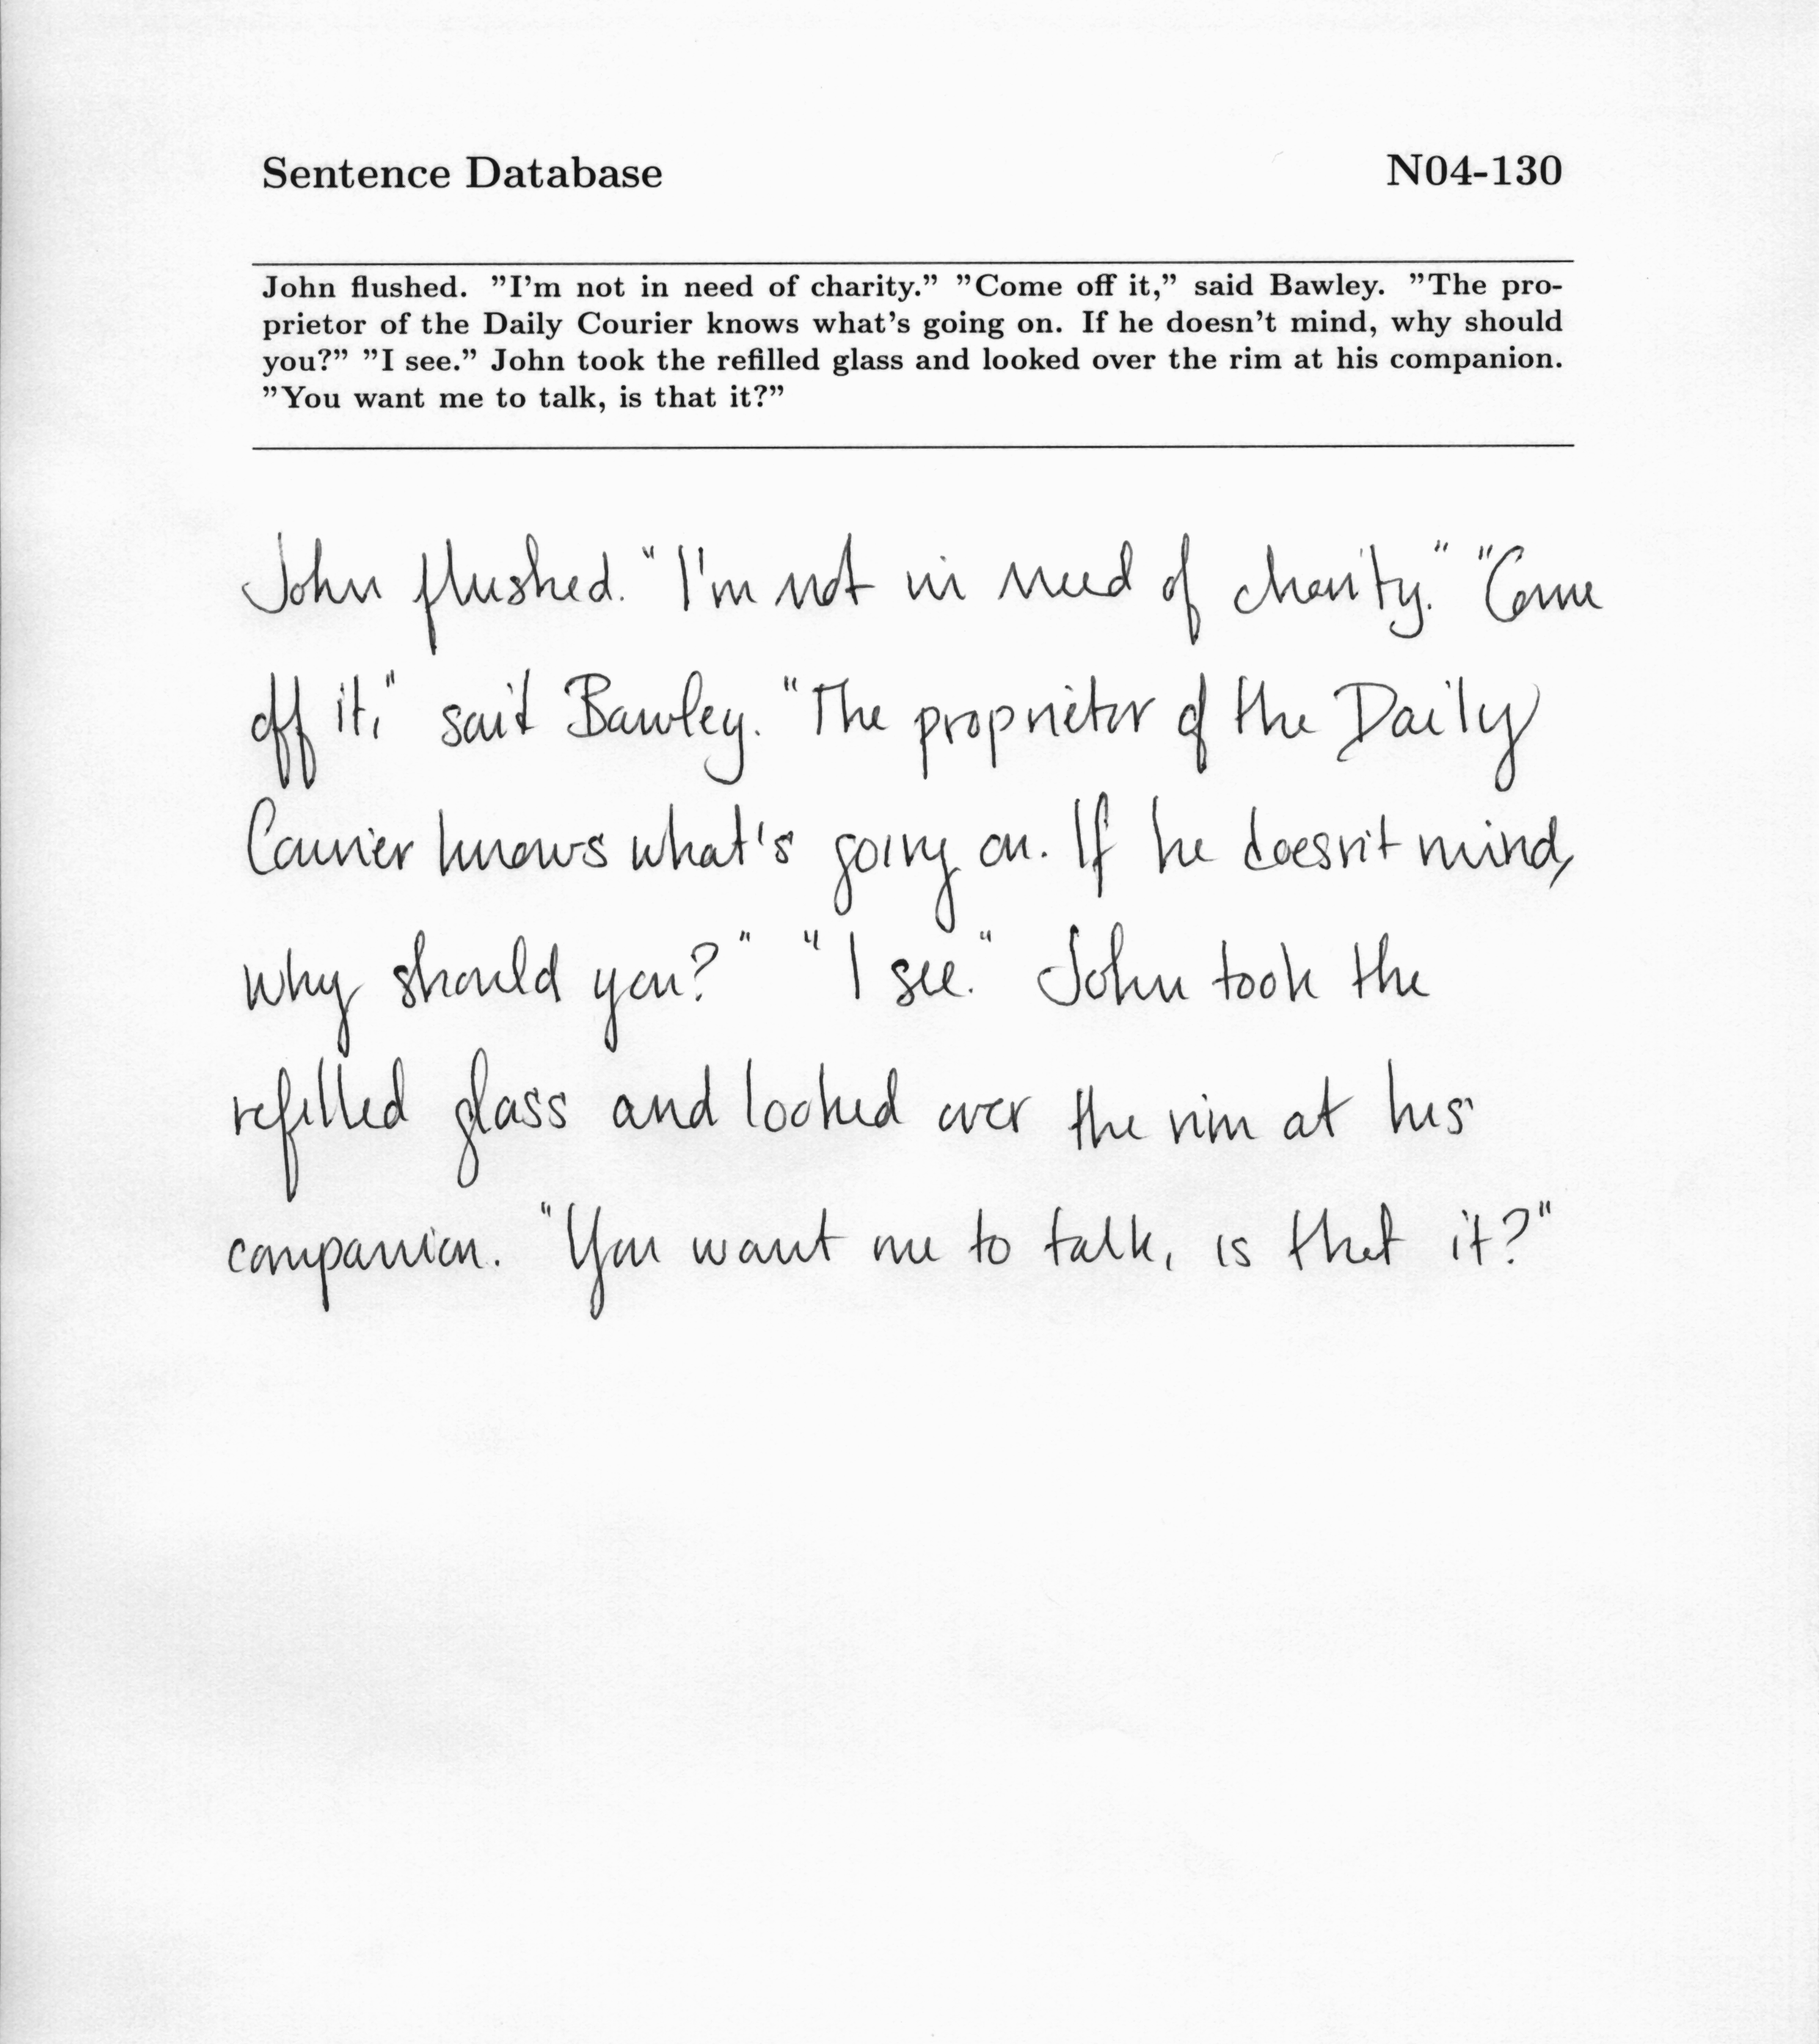 Sentence Database N04-130
John flushed. ”I’m not in need of charity.” ”Come off it,” said Bawley. ”The pro-
prietor of the Daily Courier knows what’s going on. If he doesn’t mind, why should
you?” ”I see.” John took the refilled glass and looked over the rim at his companion.
”You want me to talk, is that it?”
John flushed. "I'm not in need of charity." "Come
off it," said Bawley. "The proprietor of the Daily
Courier knows what's going on. If he doesn't mind,
why should you?" "I see." John took the
refilled glass and looked over the rim at his
companion. "You want me to talk, is that it?"